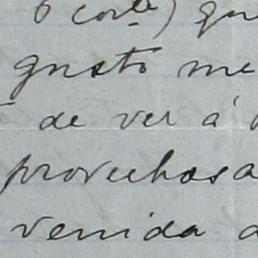 6 corte) qu
gusto me
de ver á
provechosa
venida a